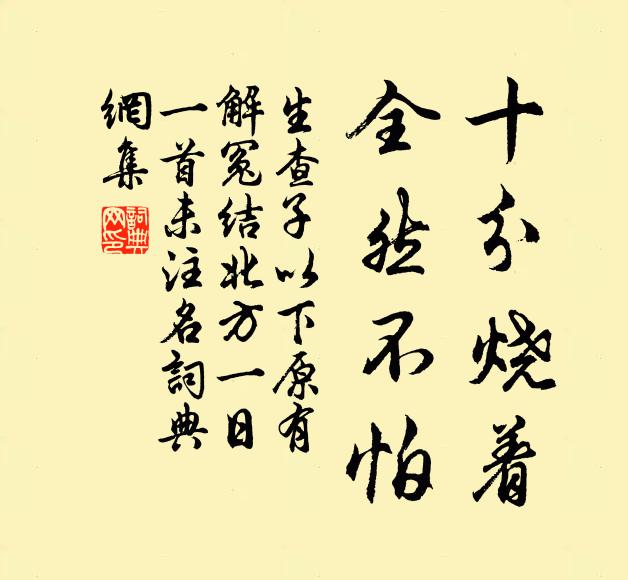 十分烧着
全然不怕
生查子以下原有
解冤结北方一日
一首未注名詞典
網集
詞典網印